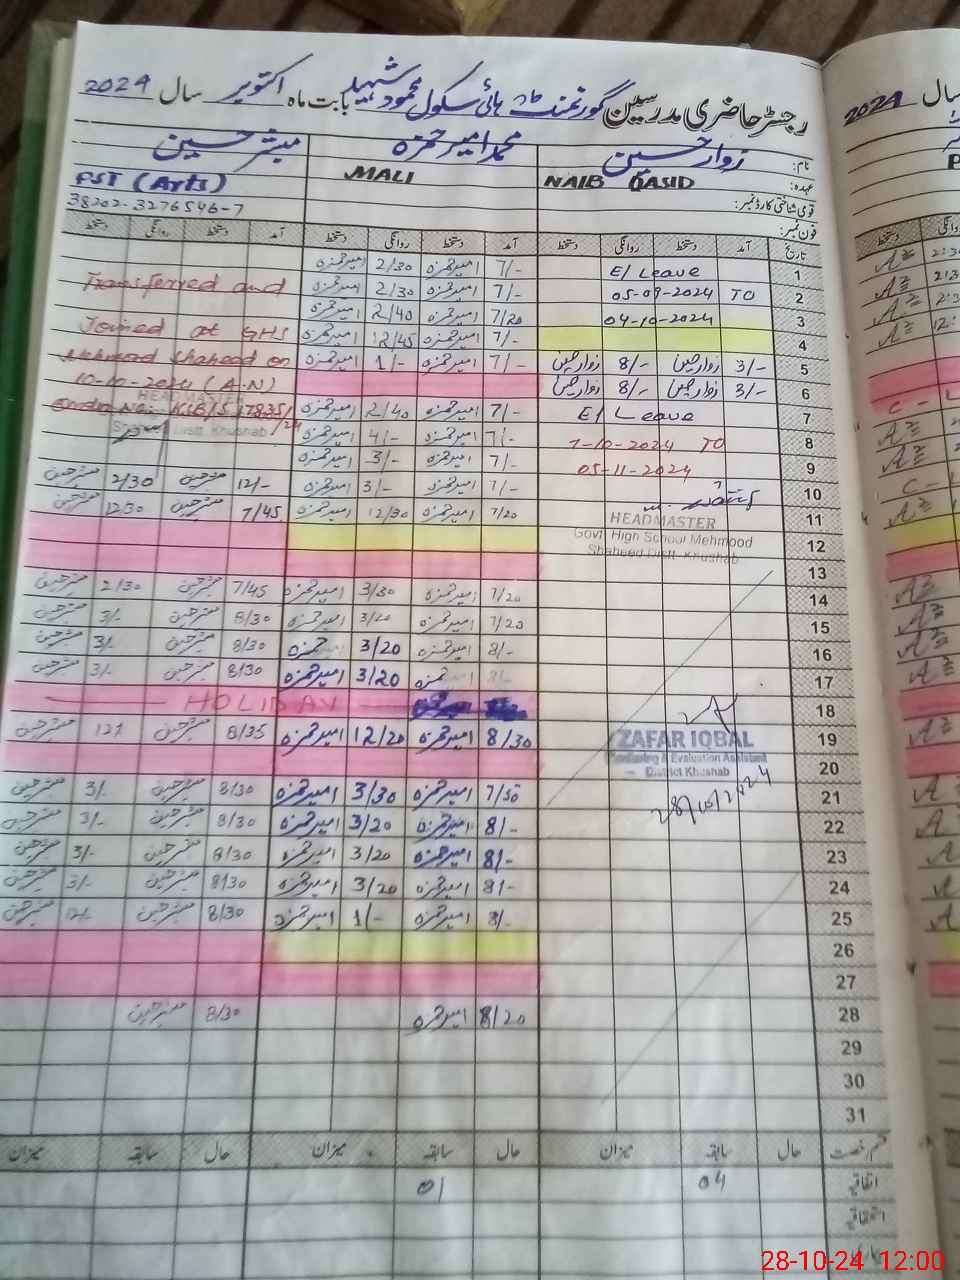 رجسٹر حاضری مدرسین گورنمنٹ ہائی سکول محمود شہید بابت ماہ اکتوبر سال 2024
نام: زوار حسین محمد امیر حمزہ مبشر حسین
عہدہ: NAIB QASID MALI PST (Arts)
قومی شناختی کارڈ نمبر: 38202-3276546-7
فون نمبر:
تاریخ آمد دستخط روانگی دستخط آمد دستخط روانگی دستخط آمد دستخط روانگی دستخط
1 E/ Leave 7/- امیر حمزہ 2/30 امیر حمزہ
2 05-09-2024 TO 7/- امیر حمزہ 2/30 امیر حمزہ Transferred and
3 04-10-2024 7/20 امیر حمزہ 2/40 امیر حمزہ
4 7/- امیر حمزہ 12/45 امیر حمزہ Joined at GHS
5 3/- زوار حسین 8/- زوار حسین 7/- امیر حمزہ 1/- امیر حمزہ Mehmood Shaheed on
6 3/- زوار حسین 8/- زوار حسین 10-10-2024 (A.N)
7 E/ Leave 7/- امیر حمزہ 2/40 امیر حمزہ
HEADMASTER
8 7-10-2024 TO 7/- امیر حمزہ 4/- امیر حمزہ
Distt. Khushab
9 05-11-2024 7/- امیر حمزہ 3/- امیر حمزہ
10 7/- امیر حمزہ 3/- امیر حمزہ 12/- مبشر حسین 2/30 مبشر حسین
11 7/20 امیر حمزہ 12/30 امیر حمزہ 7/45 مبشر حسین 12/30 مبشر حسین
HEADMASTER
Govt. High School Mehmood
12
Shaheed Distt. Khushab
13
14 7/20 امیر حمزہ 3/30 امیر حمزہ 7/45 مبشر حسین 2/30 مبشر حسین
15 7/20 امیر حمزہ 3/20 امیر حمزہ 8/30 مبشر حسین 3/- مبشر حسین
16 8/- امیر حمزہ 3/20 حمزہ 8/30 مبشر حسین 3/- مبشر حسین
17 8/- حمزہ 3/20 امیر حمزہ 8/30 مبشر حسین 3/- مبشر حسین
18 HOLIDAY
19 8/30 امیر حمزہ 12/20 امیر حمزہ 8/35 مبشر حسین مبشر حسین
ZAFAR IQBAL
Monitoring & Evaluation Assistant
20
District Khushab
28/10/2024
21 7/50 امیر حمزہ 3/30 امیر حمزہ 8/30 مبشر حسین 3/- مبشر حسین
22 8/- امیر حمزہ 3/20 امیر حمزہ 8/30 مبشر حسین 3/- مبشر حسین
23 8/- امیر حمزہ 3/20 امیر حمزہ 8/30 مبشر حسین 3/- مبشر حسین
24 8/- امیر حمزہ 3/20 امیر حمزہ 8/30 مبشر حسین 3/- مبشر حسین
25 8/- امیر حمزہ 1/- امیر حمزہ 8/30 مبشر حسین 12/- مبشر حسین
26
27
28 8/20 امیر حمزہ 8/30 مبشر حسین
29
30
31
قسم رخصت حال سابقہ میزان حال سابقہ میزان حال سابقہ میزان
اتفاقیہ 04 01
استحقاقیہ
سال 2024
28-10-24 12:00